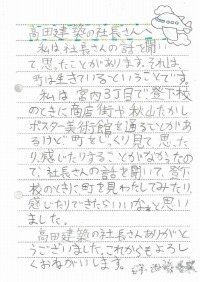 高田建築の社長さんへ
私は社長さんの話を聞い
て、思ったことがあります。それは、
町は生きているということです。
私は宮内3丁目で、登下校
のときに商店街や秋山たかし
ポスター美術館を通ることがあ
るけど、町をじっくり見て思った
り、感じたりすることがなかったの
で、社長さんの話を聞いて、登下
校のときに町を見わたしてみたり、
感じたりできたらいいなぁと思い
ました。
高田建築の社長さんありがと
うございました。これからもよろし
くおねがいします。